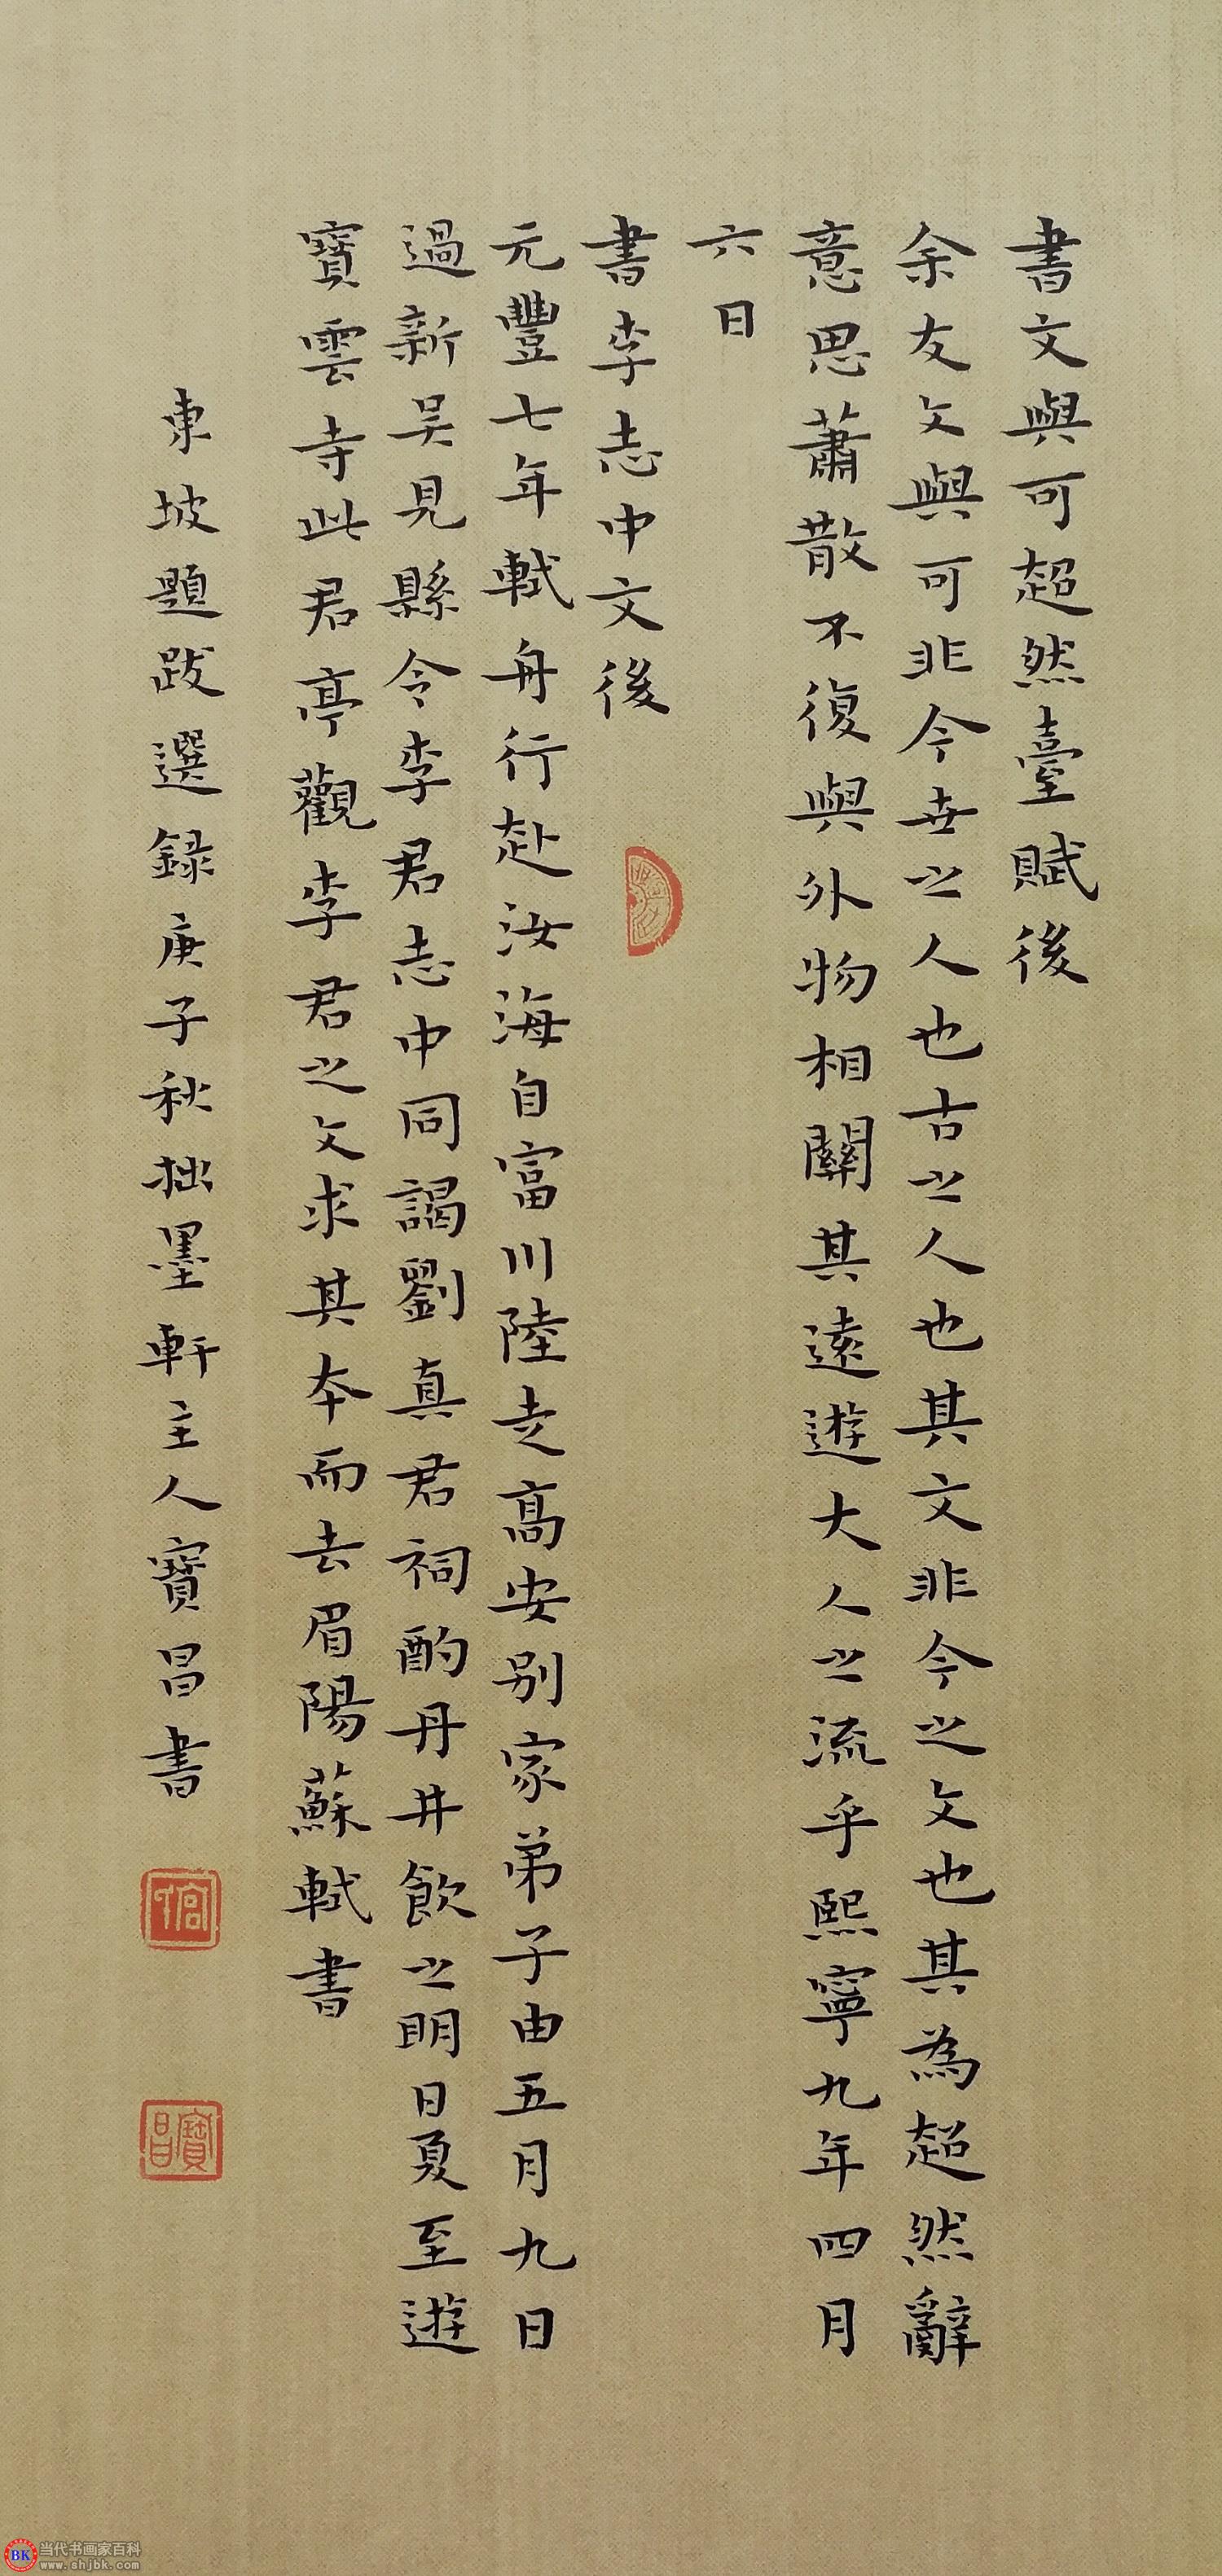 書文與可超然臺賦後
余友文與可非今世之人也古之人也其文非今之文也其為超然辭
意思蕭散不復與外物相關其遠遊大人之流乎熙寧九年四月
六日
書李志中文後
元豐七年軾舟行赴汝海自富川陸走高安别家弟子由五月九日
過新吴見縣令李君志中同謁劉真君祠酌丹井飲之明日夏至遊
寶雲寺此君亭觀李君之文求其本而去眉陽蘇軾書
東坡題跋選録庚子秋拙墨軒主人寶昌書
寶昌
BK
当代书画家百科
www.shjbk.com